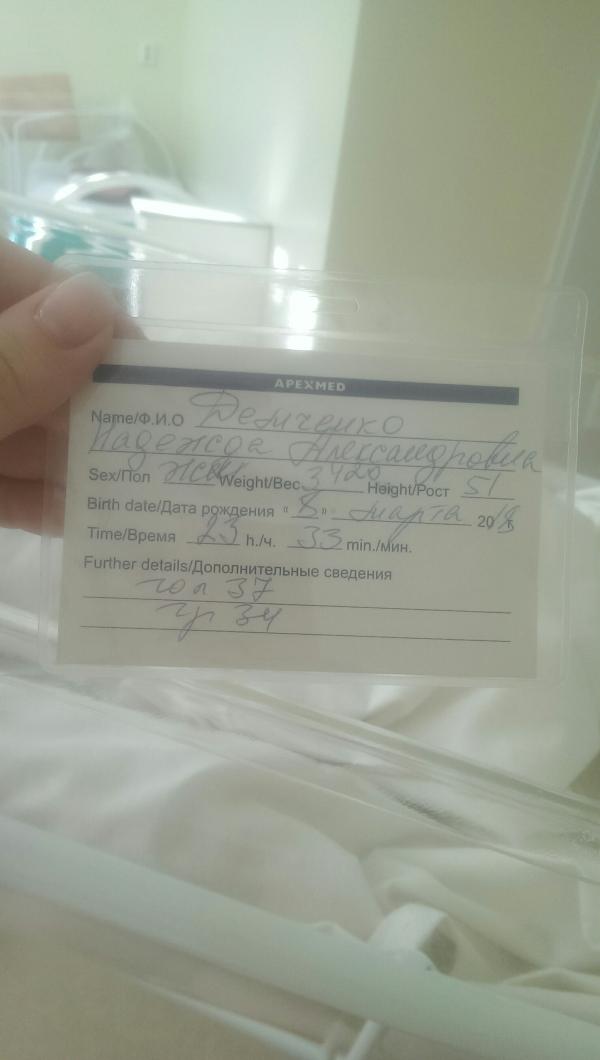 APEXMED
Name/Ф.И.О Демченко
Надежда Александровна
Sex/Пол жен Weight/Вес 3420 Height/Рост 51
Birth date/Дата рождения "8" марта 2018
Time/Время 23 h./ч. 33 min./мин.
Further details/Дополнительные сведения
гол 37
гр 34